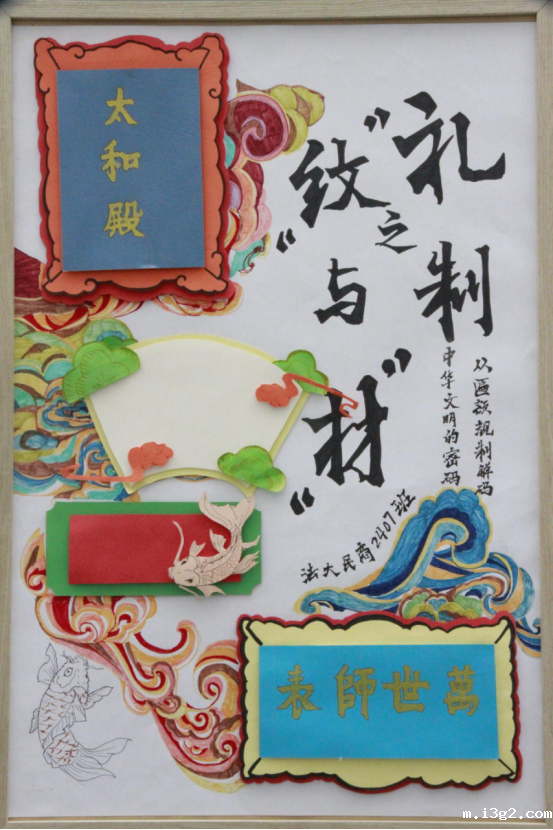 礼制
之
“纹”与“材”
从匾额规制解码
中华文明的密码
法大民商2407班
太和殿
萬世師表
m.i3g2.com